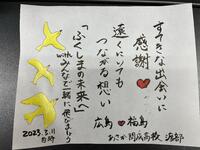 すてきな出会いに
感謝
遠くにいても
つながる想い
広島 福島
あさか開成高校
「ふくしまの未来へ」
withみんなで一緒に飛びたとう
2023.2.11